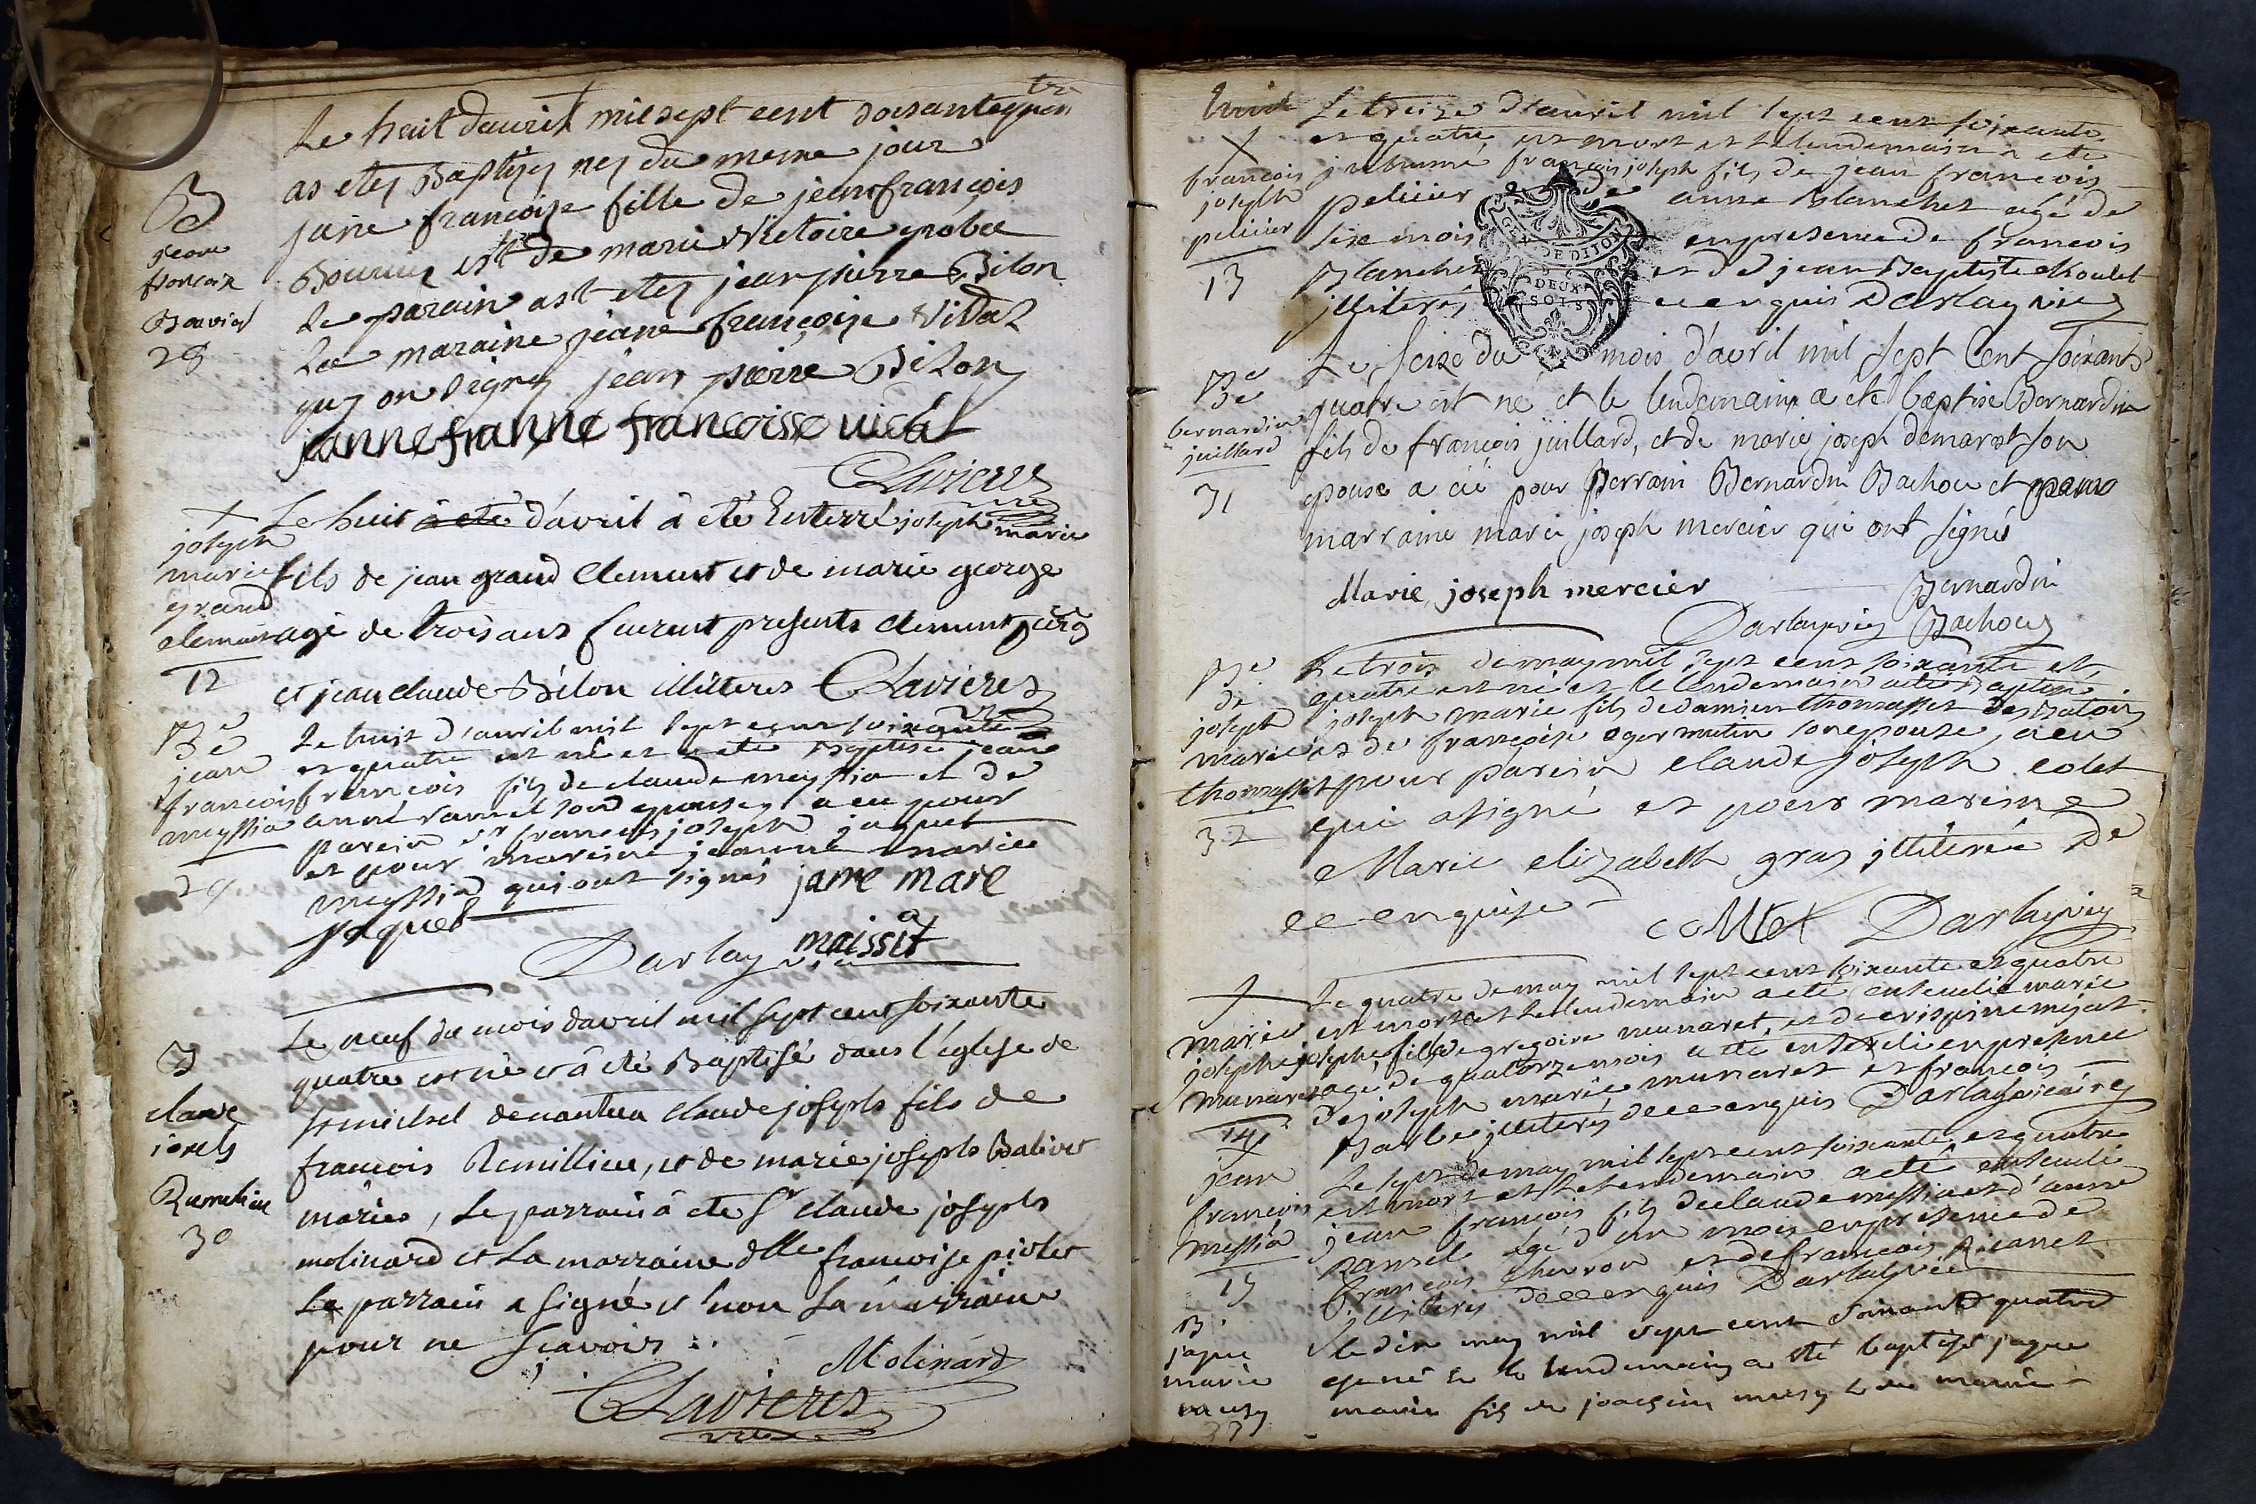 Le huit davrit mil sept cent soisante
as etez Baptisez nez du mesme jour
B
jeane
francoise
Bouvier
28
jane francoize fille de jean françois
Bouvier et de marie Victoire
Le parain ast etez jean pierre Bilon
La maraine jeane françoise Vidal
quy on signez jean pierre Bilon
janne franne francoisse uidal
Clavieres
vre
+
joseph
marie
grand
clement
12
Le huit d'avril à été Enterré joseph marie
fils de jean grand Clement et de marie george
agé de trois ans furent presents clement
et jean claude Bilon illiteres Clavieres
Be
jean
francois
meyssia
29
Le huit d'auril mil sept cent soixante
et quatre est né et a ete Baptisé jean
francois fils de claude meyssia et de
anne ramel son epouse, a eu pour
parein sr francois joseph jaquet
et pour mareine jeanne marie
meyssia qui ont signés jame mare
jaquet
Darlay maissia
B
claude
joseph
Remilieu
30
Le neuf du mois davril mil sept cent soixante
quatre est né et à été Baptisé dans l'églese de
st michel de nantua claude joseph fils de
francois Remillieu, et de marie joseph Balivet
mâriés, Le parrain à ete Sr claude joseph
molinard et La marraine dlle francoise piolet
Le parrain a signé et non La marraine
pour ne scavoir
Molinard
Clavieres
vre
+
francois
joseph
pelisier
13
Le treize d'auril mil sept cent soixante
et quatre est mort et le lendemain a ete
jnhumé francois joseph fils de jean francois
pelisier et de anne Blanchet agé de
six mois en presence de francois
Blanchet et de jean Baptiste Moulet
jlliterés de ce enquis Darlay vic
GEN. DE DIJON
DEUX
SOLS
Be
bernardin
juillard
31
Le seize du mois d'avril mil sept Cent soixante
quatre est né et le lendemain a eté baptise Bernardin
fils de françois juillard, et de marie joseph demarest son
epouse a eü pour Parrain Bernardin Bachou et pour
marraine marie joseph mercier qui ont signés
Marie joseph mercier
Bernardin
Bachou
Darlay vic
Be
de
joseph
marie
thomasset
32
Le trois de may mil sept cent soixante et
quatre est né et le lendemain a eté Baptisé
joseph marie fils de damien thomasset
et de françoise son epouse, a eu
pour parein claude joseph colet
qui a signé et pour mareine
Marie elizabeth gras jlliterée de
ce enquise
collet Darlay vic
+
marie
josephe
munaret
14
Le quatre de may mil sept cent soixante et quatre
est morte et le lendemain a eté enseuelie marie
josephe fille de gregoire munaret, et de crispine mijat
agé de quatorze mois a ete enseuelie en presence
de joseph marie munaret et francois
Barbe jlliterés de ce enquis Darlay vicaire
jean
francois
messia
15
Le sept de may mil sept cent soixante et quatre
est mort et le lendemain a eté enseueli
jean françois fils de claude messia et d'anne
ramel agé d'un mois en presence de
françois chevron et de francois
jlliterés de ce enquis Darlay vic
B
jaque
marie
musy
33
le dix may mil sept cent soixante quatre
est né et le lendemain a eté baptisé jaque
marie fils de joachim musy et de marie